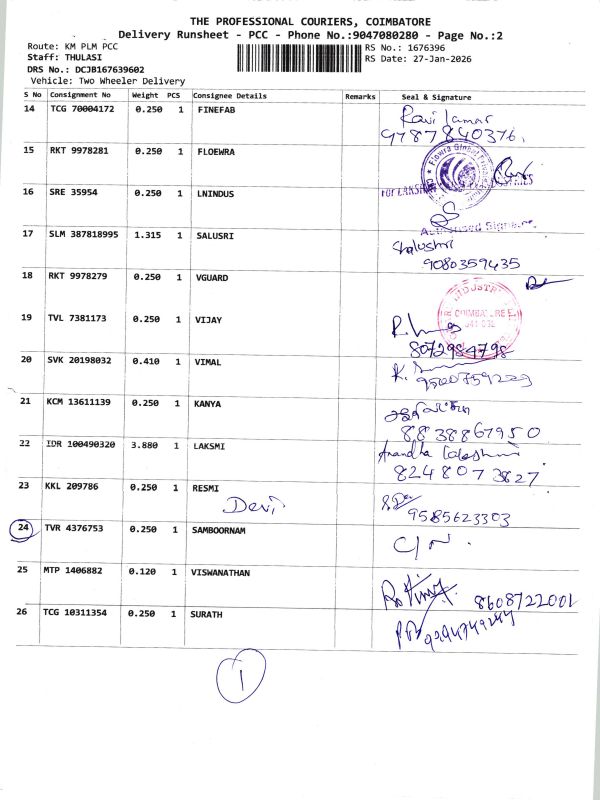 THE PROFESSIONAL COURIERS, COIMBATORE
Delivery Runsheet - PCC - Phone No.:9047080280 - Page No.:2
Route: KM PLM PCC
RS No.: 1676396
Staff: THULASI
RS Date: 27-Jan-2026
DRS No.: DCJB167639602
Vehicle: Two Wheeler Delivery
S No Consignment No Weight PCS Consignee Details Remarks Seal & Signature
14 TCG 70004172 0.250 1 FINEFAB
9787840376.
15 RKT 9978281 0.250 1 FLOEWRA
16 SRE 35954 0.250 1 LNINDUS
17 SLM 387818995 1.315 1 SALUSRI Shalushri
9080359435
18 RKT 9978279 0.250 1 VGUARD
COIMBATORE
19 TVL 7381173 0.250 1 VIJAY
8072984798
20 SVK 20198032 0.410 1 VIMAL
21 KCM 13611139 0.250 1 KANYA
8838867950
22 IDR 100490320 3.880 1 LAKSMI
8248073827
23 KKL 209786 0.250 1 RESMI
Devi 9585623303
24 TVR 4376753 0.250 1 SAMBOORNAM C/N.
25 MTP 1406882 0.120 1 VISWANATHAN
8608722001
26 TCG 10311354 0.250 1 SURATH
1